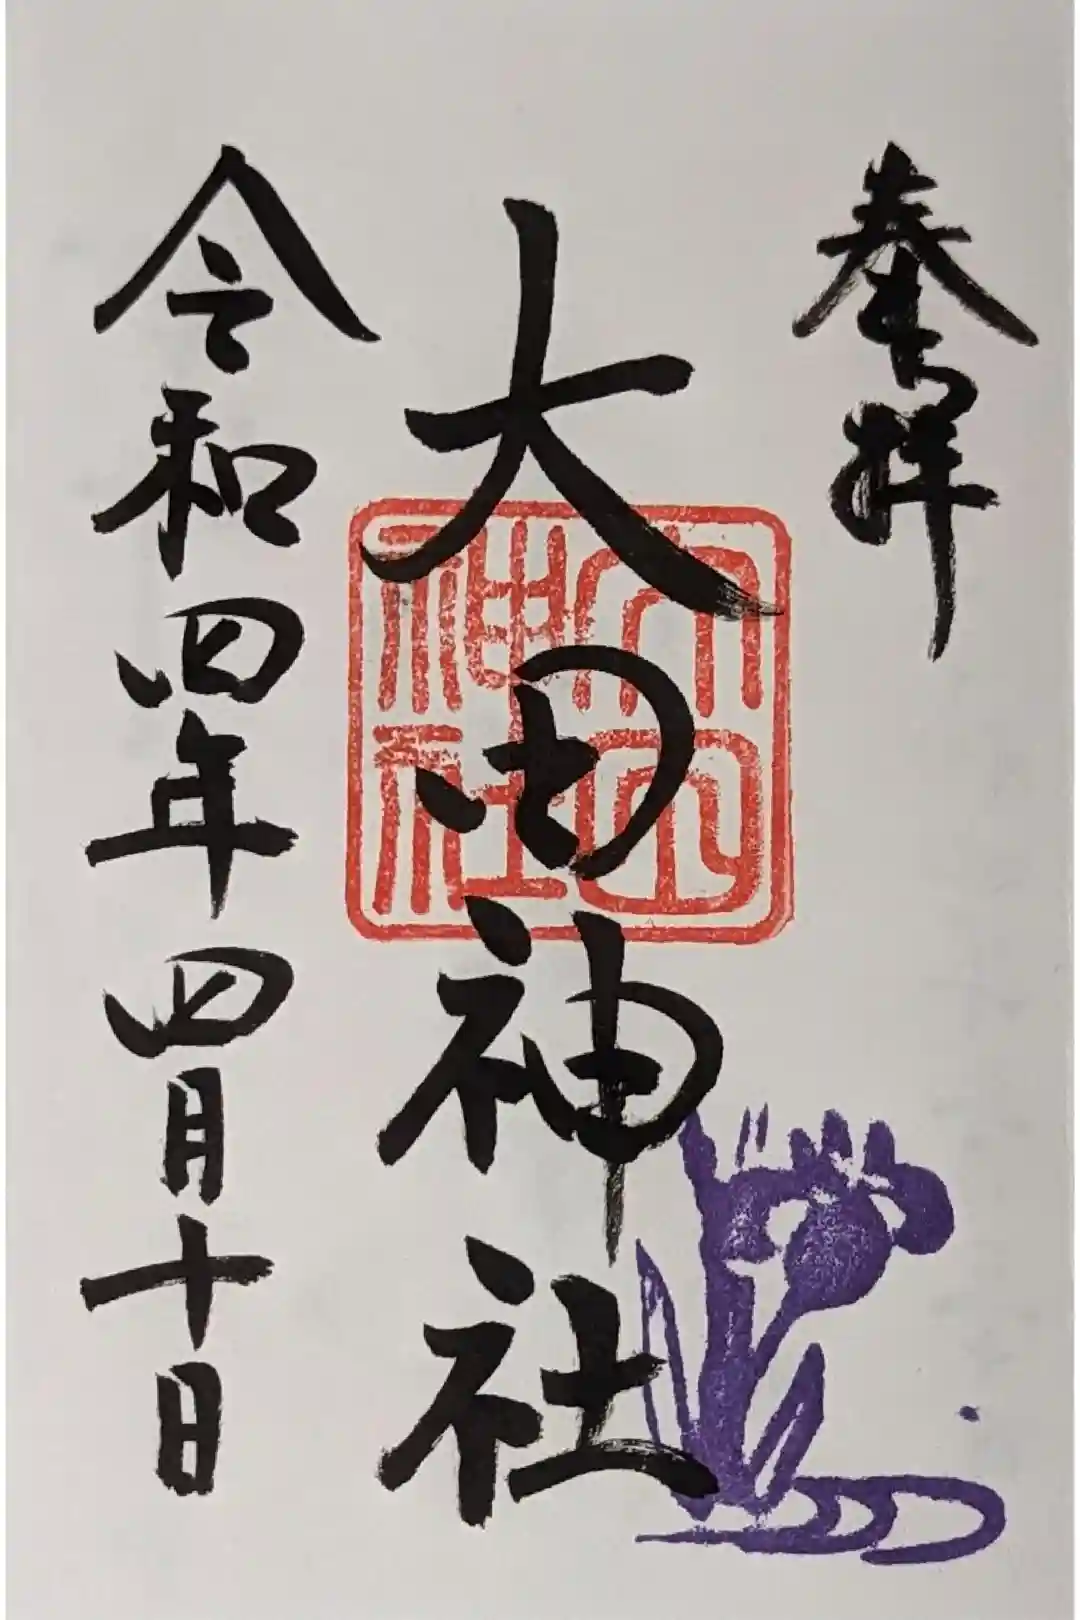 奉拝
大田神社
大田神社
令和四年四月十日